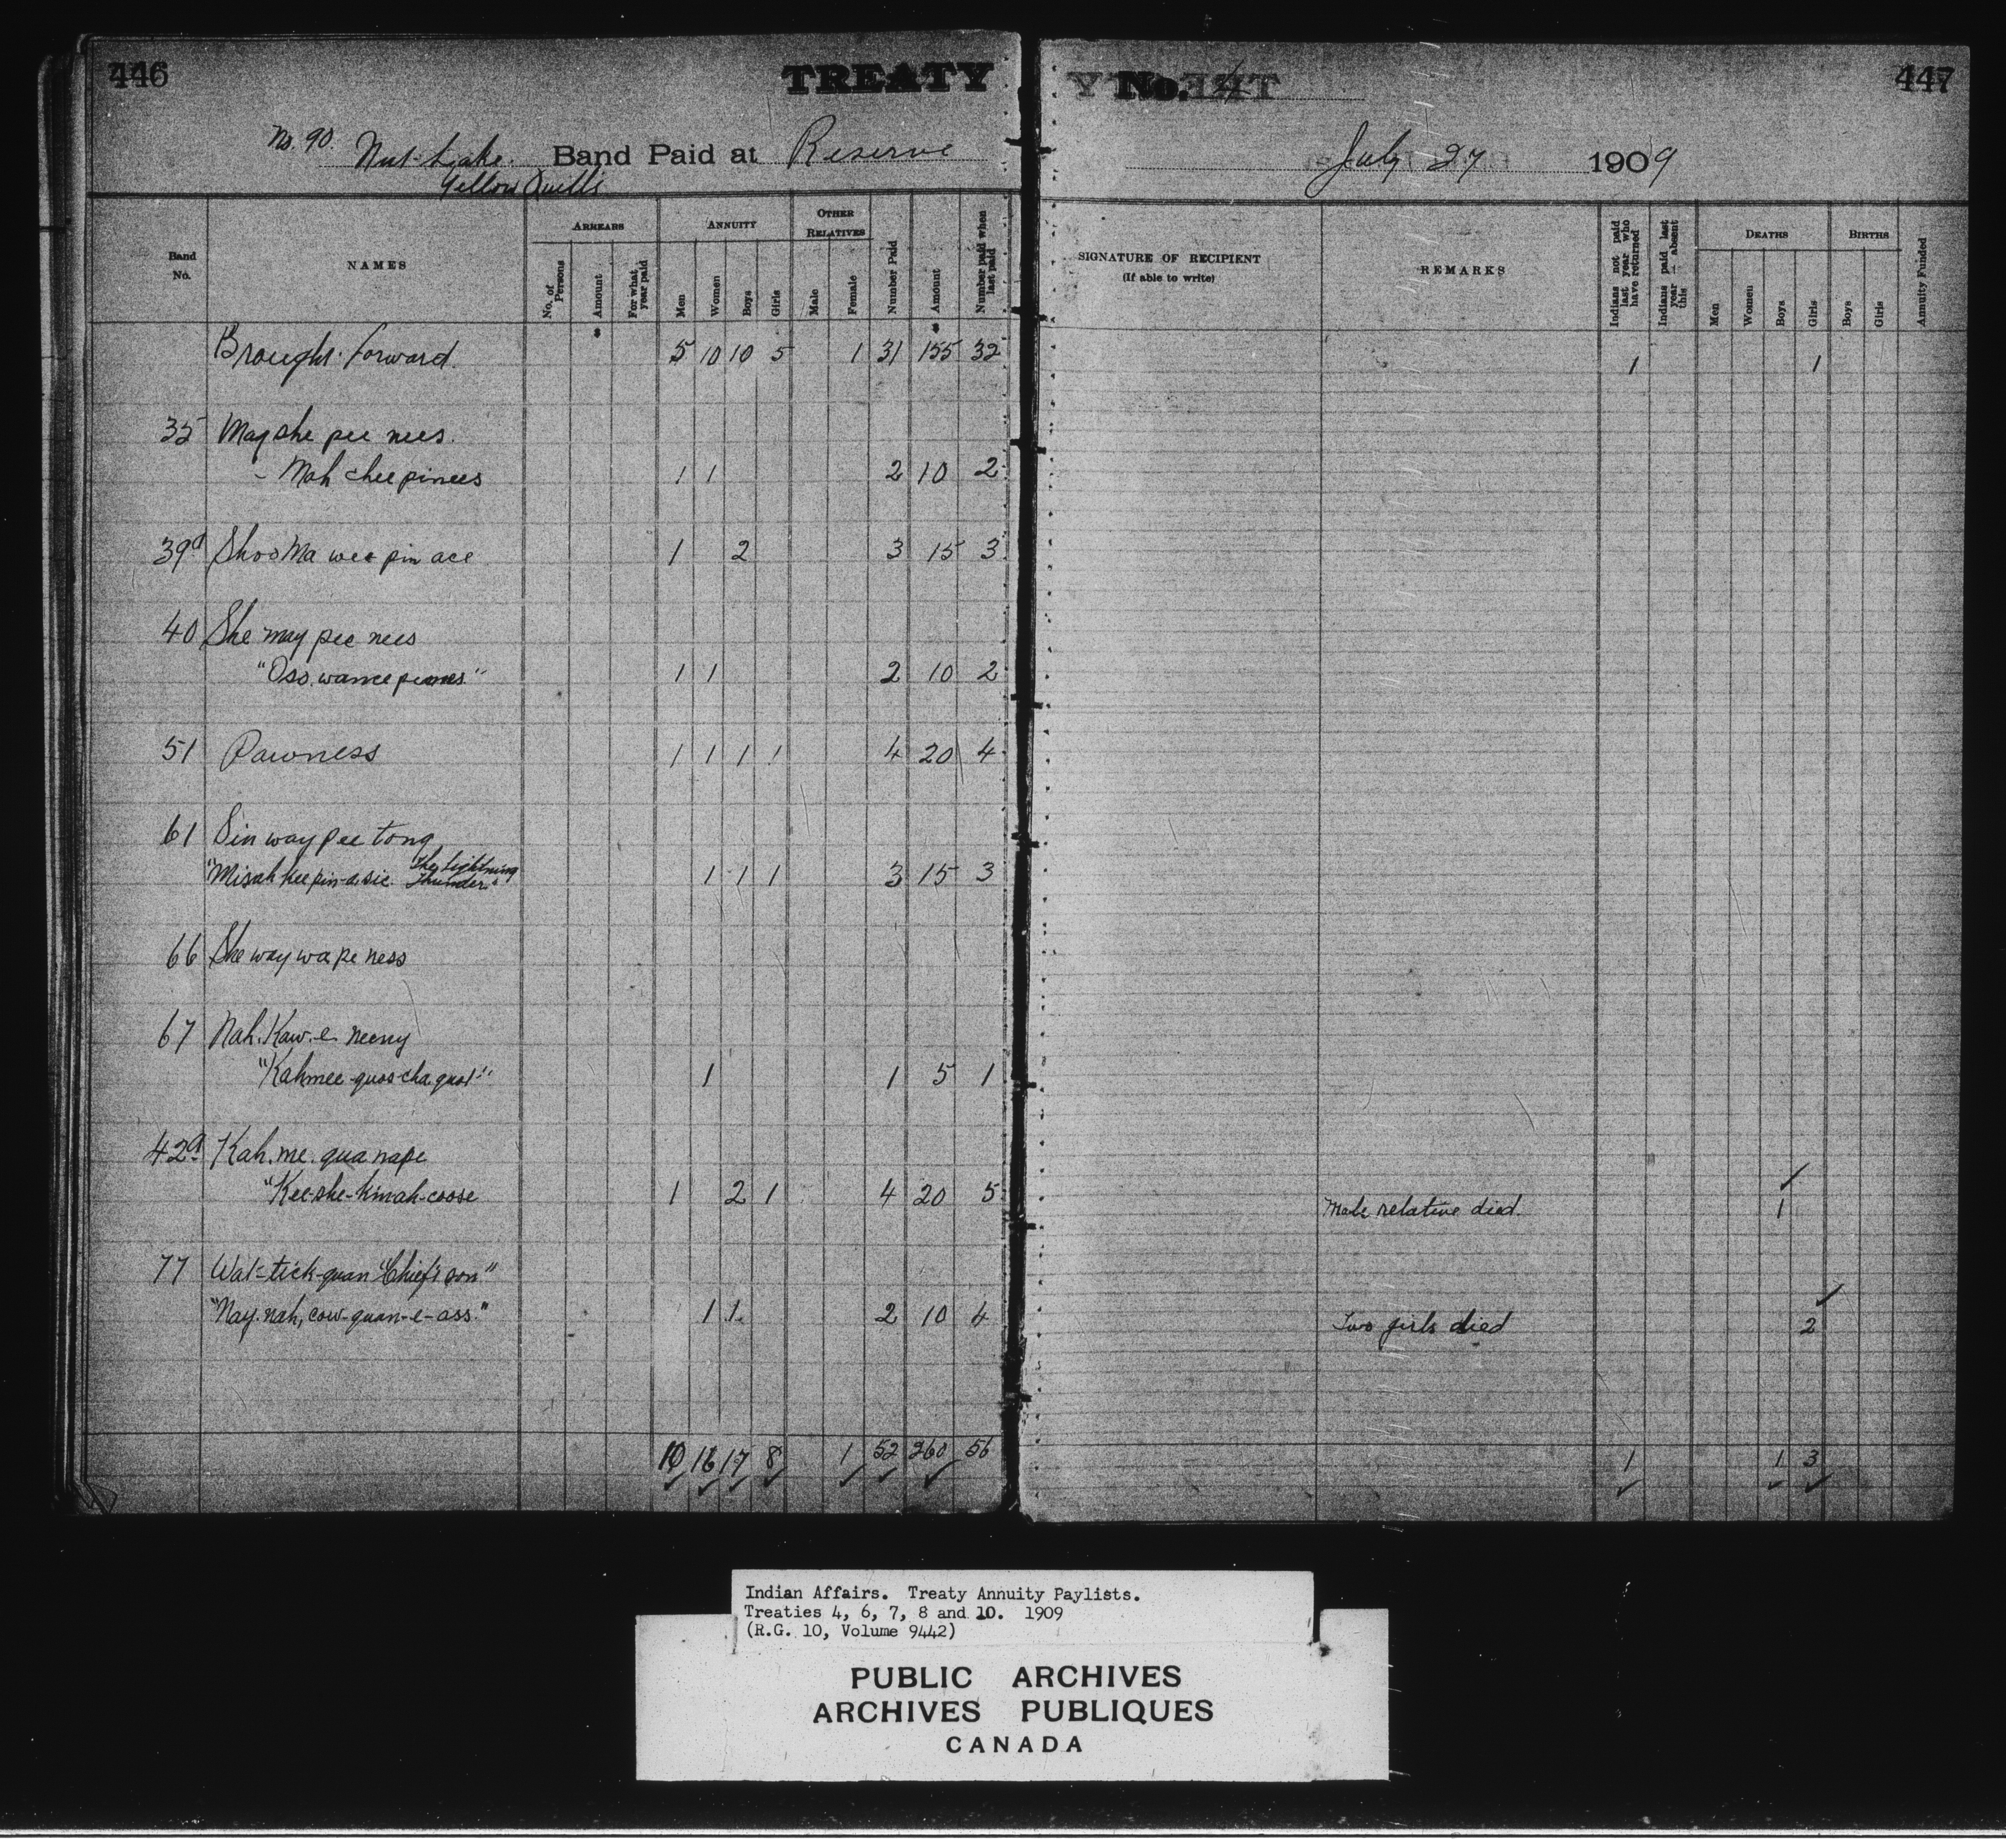 446 TREATY No. 4 447
No. 90. Nut Lake. Band Paid at Reserve July 27 1909
Yellow Quills
Band No. NAMES ARREARS ANNUITY OTHER RELATIVES Number Paid Amount Number paid when last paid SIGNATURE OF RECIPIENT (If able to write) REMARKS Indians not paid last year who have returned Indians paid last year — absent this DEATHS BIRTHS Annuity Funded
No. of Persons Amount For what year paid Men Women Boys Girls Male Female Men Women Boys Girls Boys Girls
Brought forward. 5 10 10 5 1 31 155 32 1 1
35 May she pee nees.
- Mah chee pinees 1 1 2 10 2
39a Shoo Ma wee pin ace 1 2 3 15 3
40 She may pee nees
1 1 2 10 2
51 Pawness 1 1 1 1 4 20 4
61 Sin way pee tong
"Misah kee pin-a-sie. The Lightning Thunder" 1 1 1 3 15 3
66 She way wa pe ness
67 Nah. Kaw. e. neeny
"Kahmee-quos-cha quot" 1 1 5 1
42a Kah. me. qua nape
"Kee-she-kinah-coose 1 2 1 4 20 5 Male relative died. 1
77 Wat-tick-quan "Chief's son"
"Nay. nah, cow-quan-e-ass." 1 1 2 10 4 Two girls died 2
10 16 17 8 1 52 260 56 1 1 3
Indian Affairs. Treaty Annuity Paylists.
Treaties 4, 6, 7, 8 and 10. 1909
(R.G. 10, Volume 9442)
PUBLIC ARCHIVES
ARCHIVES PUBLIQUES
CANADA